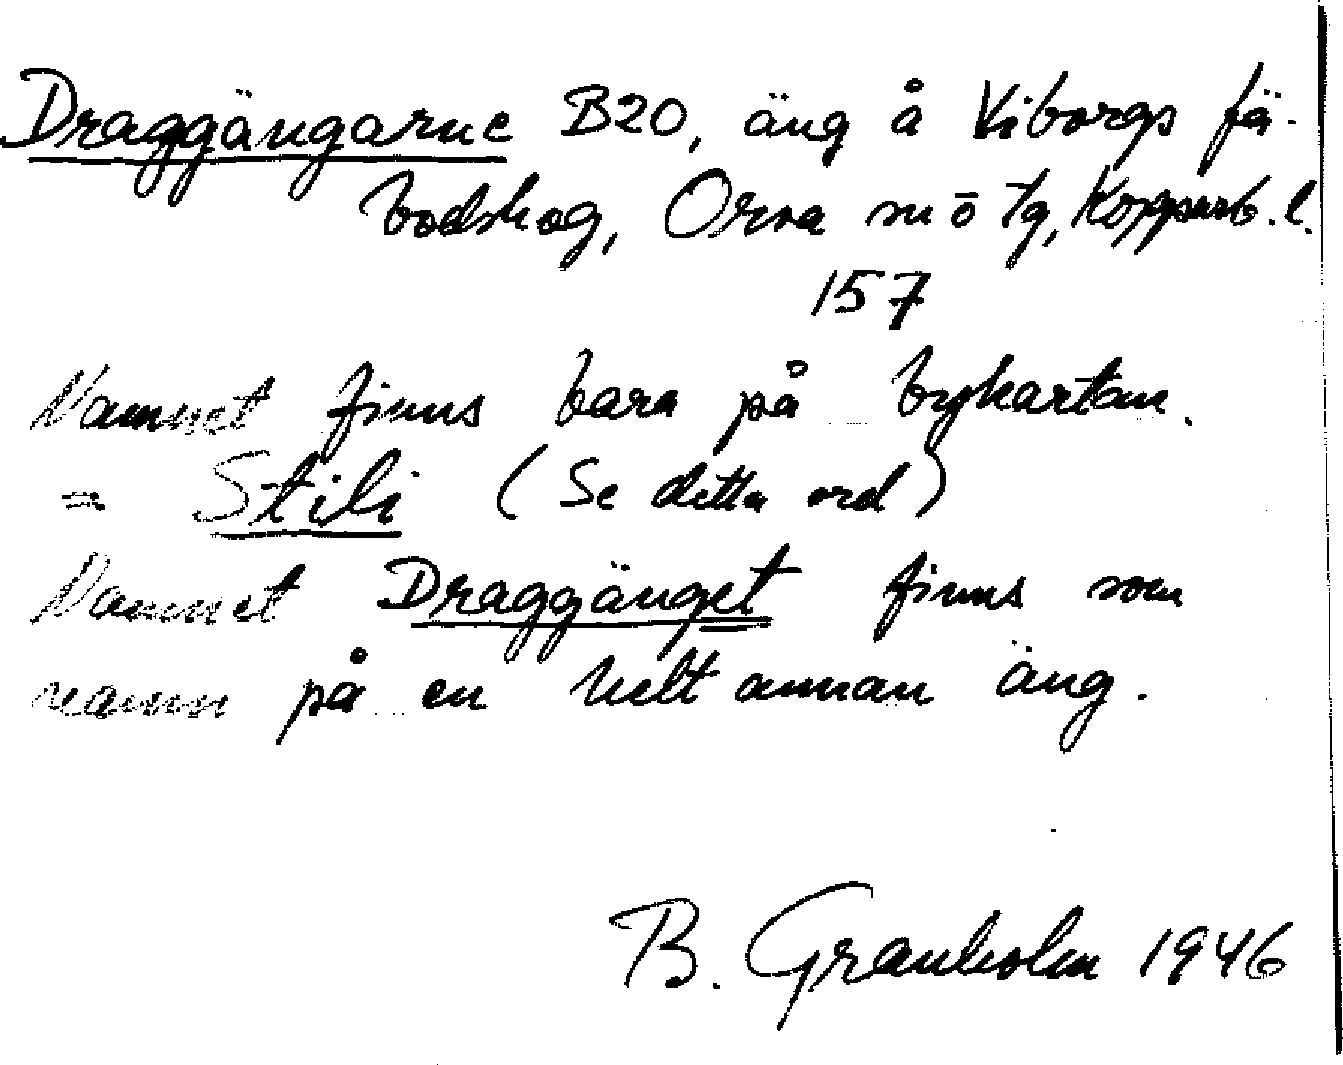 Draggängarne B20, äng å Viborgs fä-
bodskog, Orsa sn ō tg, Kopparb. l.
157
Namnet finns bara på bykartan.
= Stili (Se detta ord)
Namnet Draggänget finns som
namn på en helt annan äng.
B. Granholm 1946